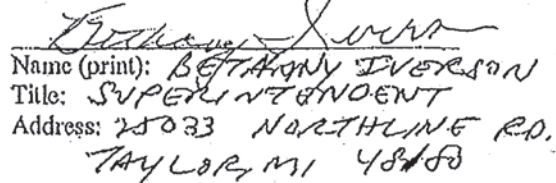 Bethany Iverson
Name (print): BETHANY IVERSON
Title: SUPERINTENDENT
Address: 25033 NORTHLINE RD.
TAYLOR, MI 48180